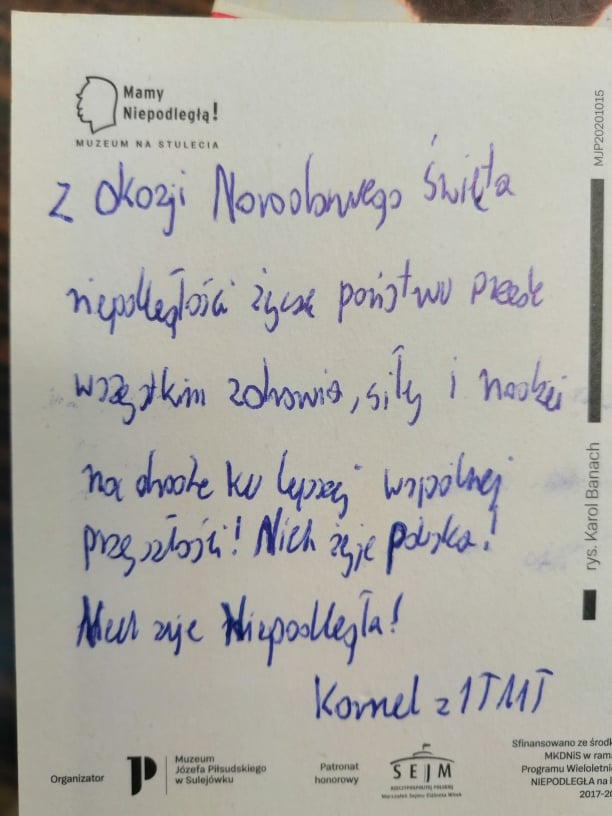 Mamy
Niepodległą!
MUZEUM NA STULECIA
MJP20201015
z okazji Narodowego Święta
niepodległości życzę państwu przede
wszystkim zdrowia, siły i nadziei
na drodze ku lepszej wspólnej
przyszłości! Niech żyje polska!
Niech żyje Niepodległa!
Kornel z 1T
rys. Karol Banach
Organizator
Muzeum
Józefa Piłsudskiego
w Sulejówku
Patronat
honorowy
SEJM
RZECZYPOSPOLITEJ POLSKIEJ
Marszałek Sejmu Elżbieta Witek
Sfinansowano ze środk
MKDNiS w rama
Programu Wieloletnie
NIEPODLEGŁA na l
2017-20